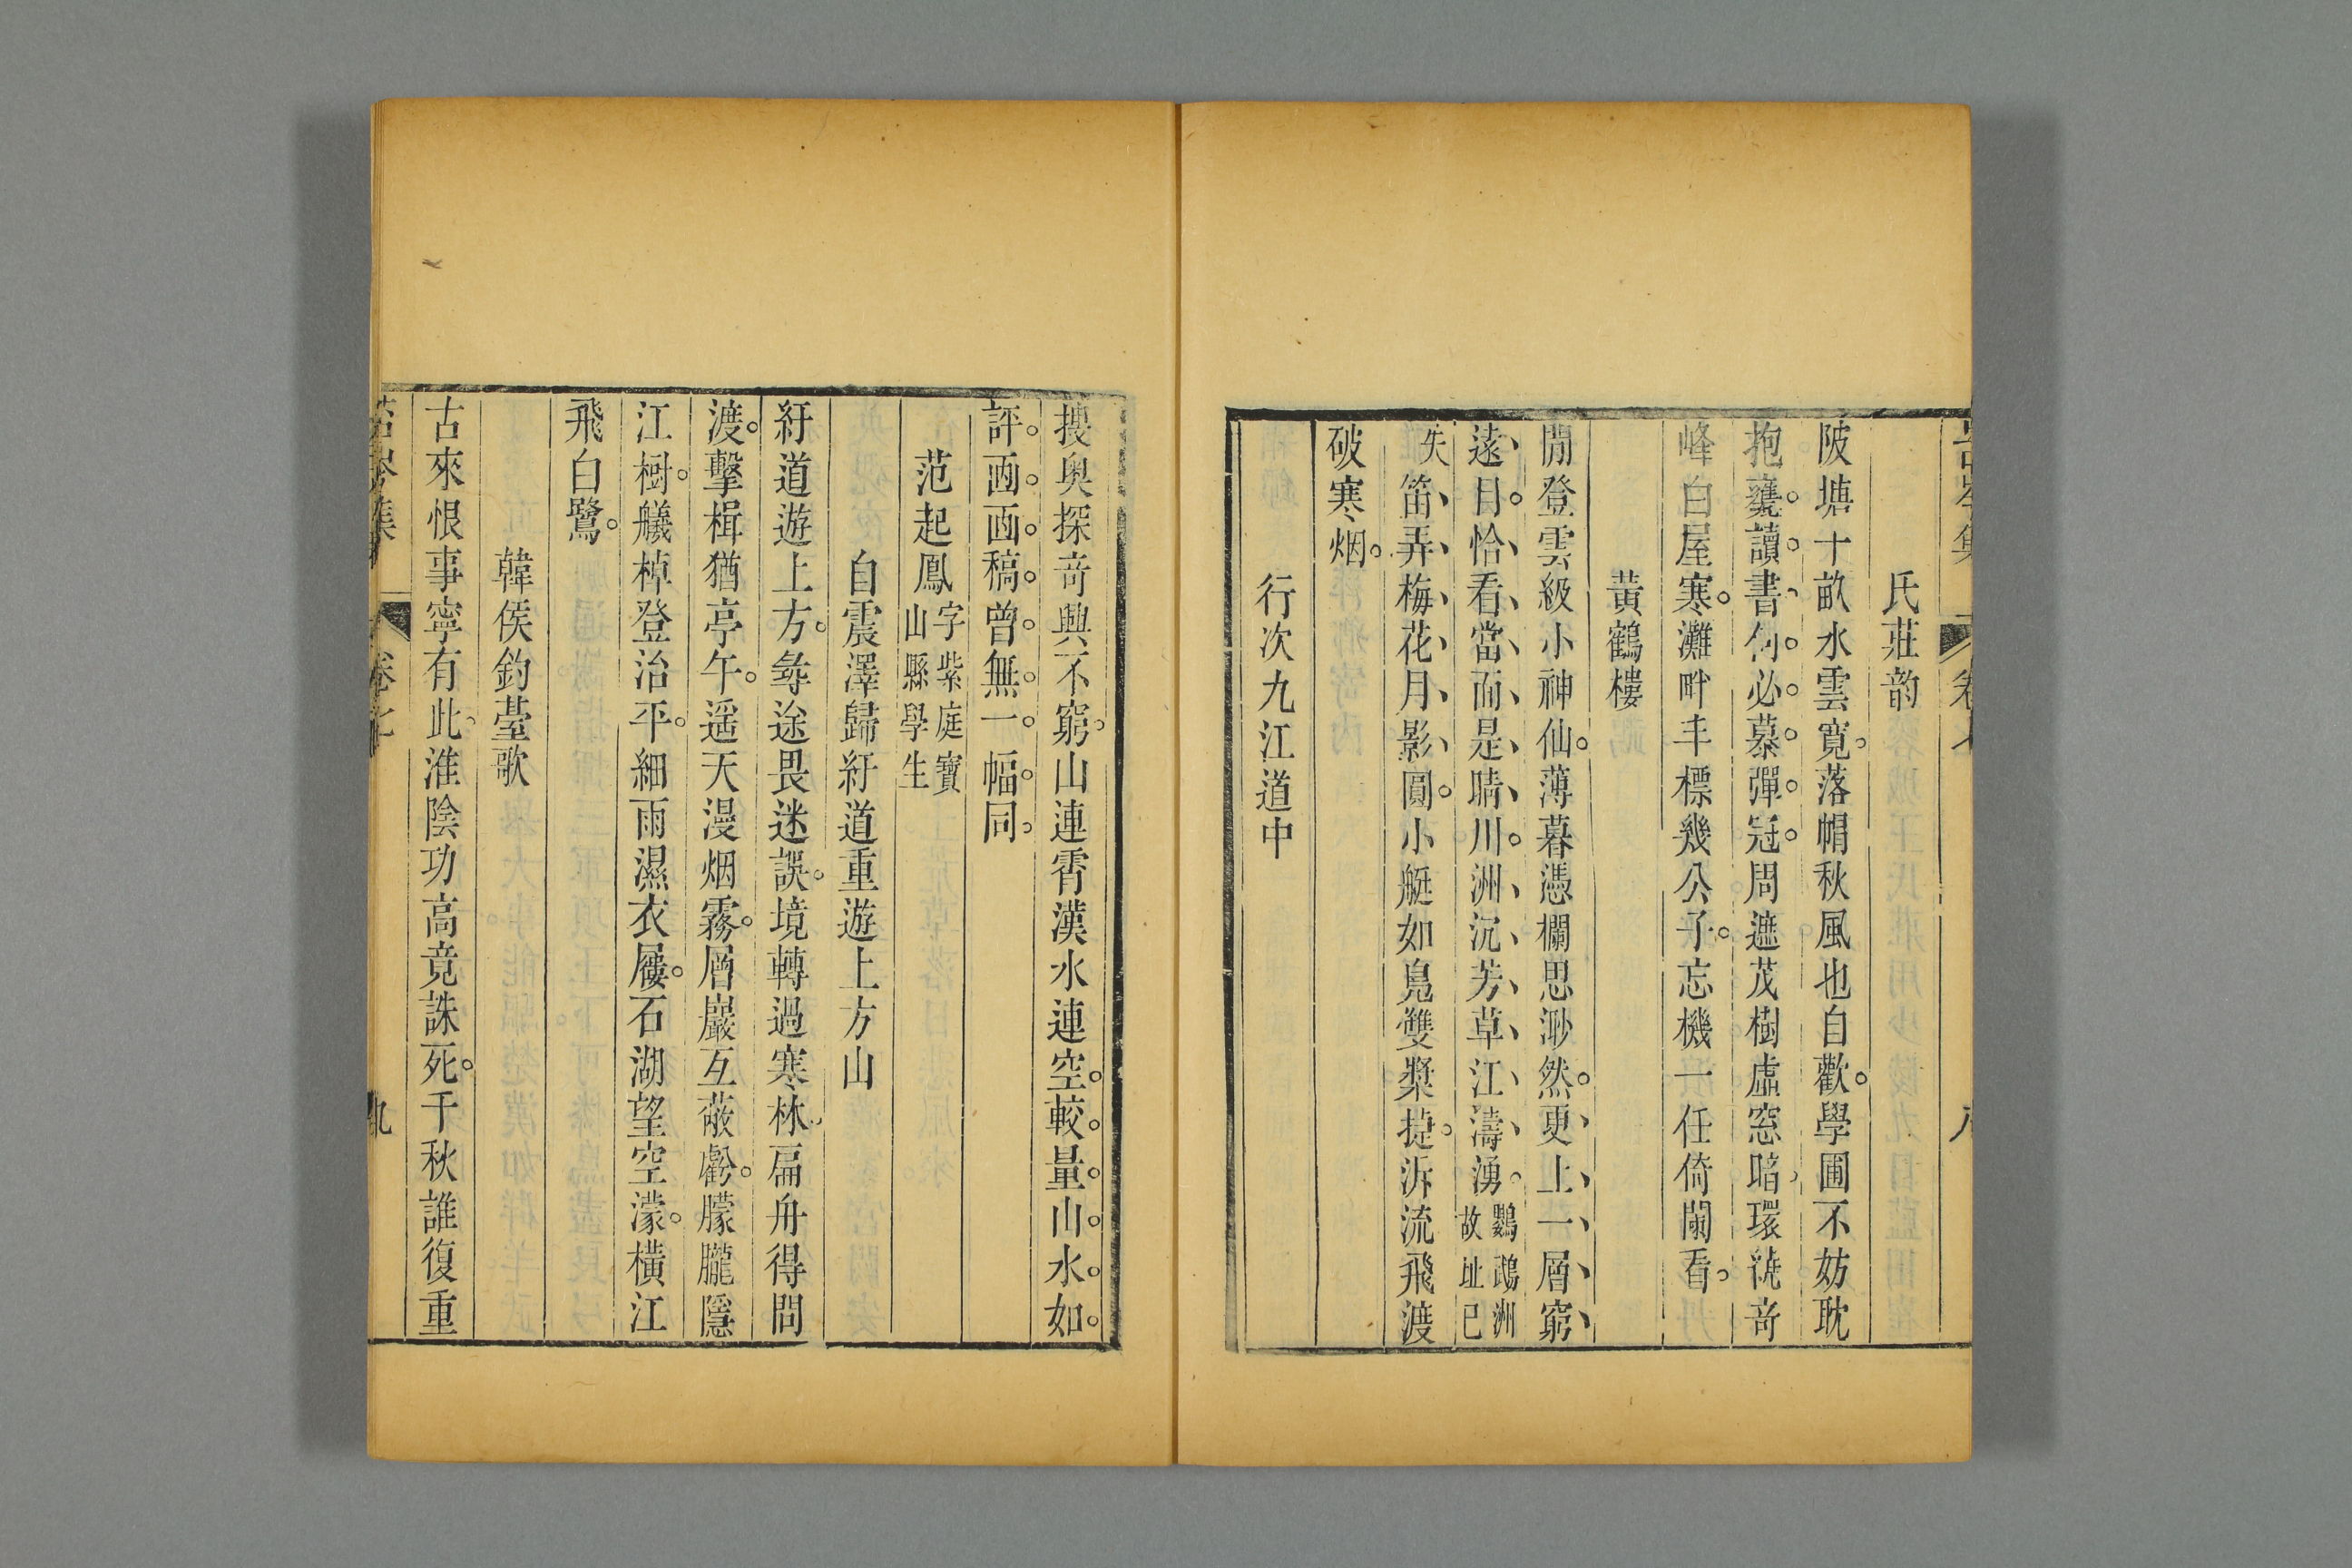 氏莊韵
陂塘十畝水雲寬落帽秋風也自歡學圃不妨耽
抱甕讀書何必慕彈冠周遮茂樹虛窓暗環徙竒
峰白屋寒灘畔丰標幾公子忘機一任倚闌看
黃鶴樓
閒登雲級小神仙薄暮憑欄思渺然更上一層窮
遠目恰看當面是晴川洲沉芳草江濤湧鸚鵡洲故址已
失笛弄梅花月影圓小艇如鳧雙槳捷泝流飛渡
破寒烟
行次九江道中
搜奥探竒興不窮山連霄漢水連空較量山水如
評画画稿曾無一幅同
范起鳳字紫庭寶山縣學生
自震澤歸紆道重遊上方山
紆道遊上方尋途畏迷誤境轉過寒林扁舟得問
渡擊楫猶亭午遥天漫烟霧層巖互蔽虧朦朧隱
江樹艤棹登治平細雨濕衣屨石湖望空濛橫江
飛白鷺
韓侯釣臺歌
古來恨事寧有此淮陰功高竟誅死千秋誰復重
苔岑集
卷七
九